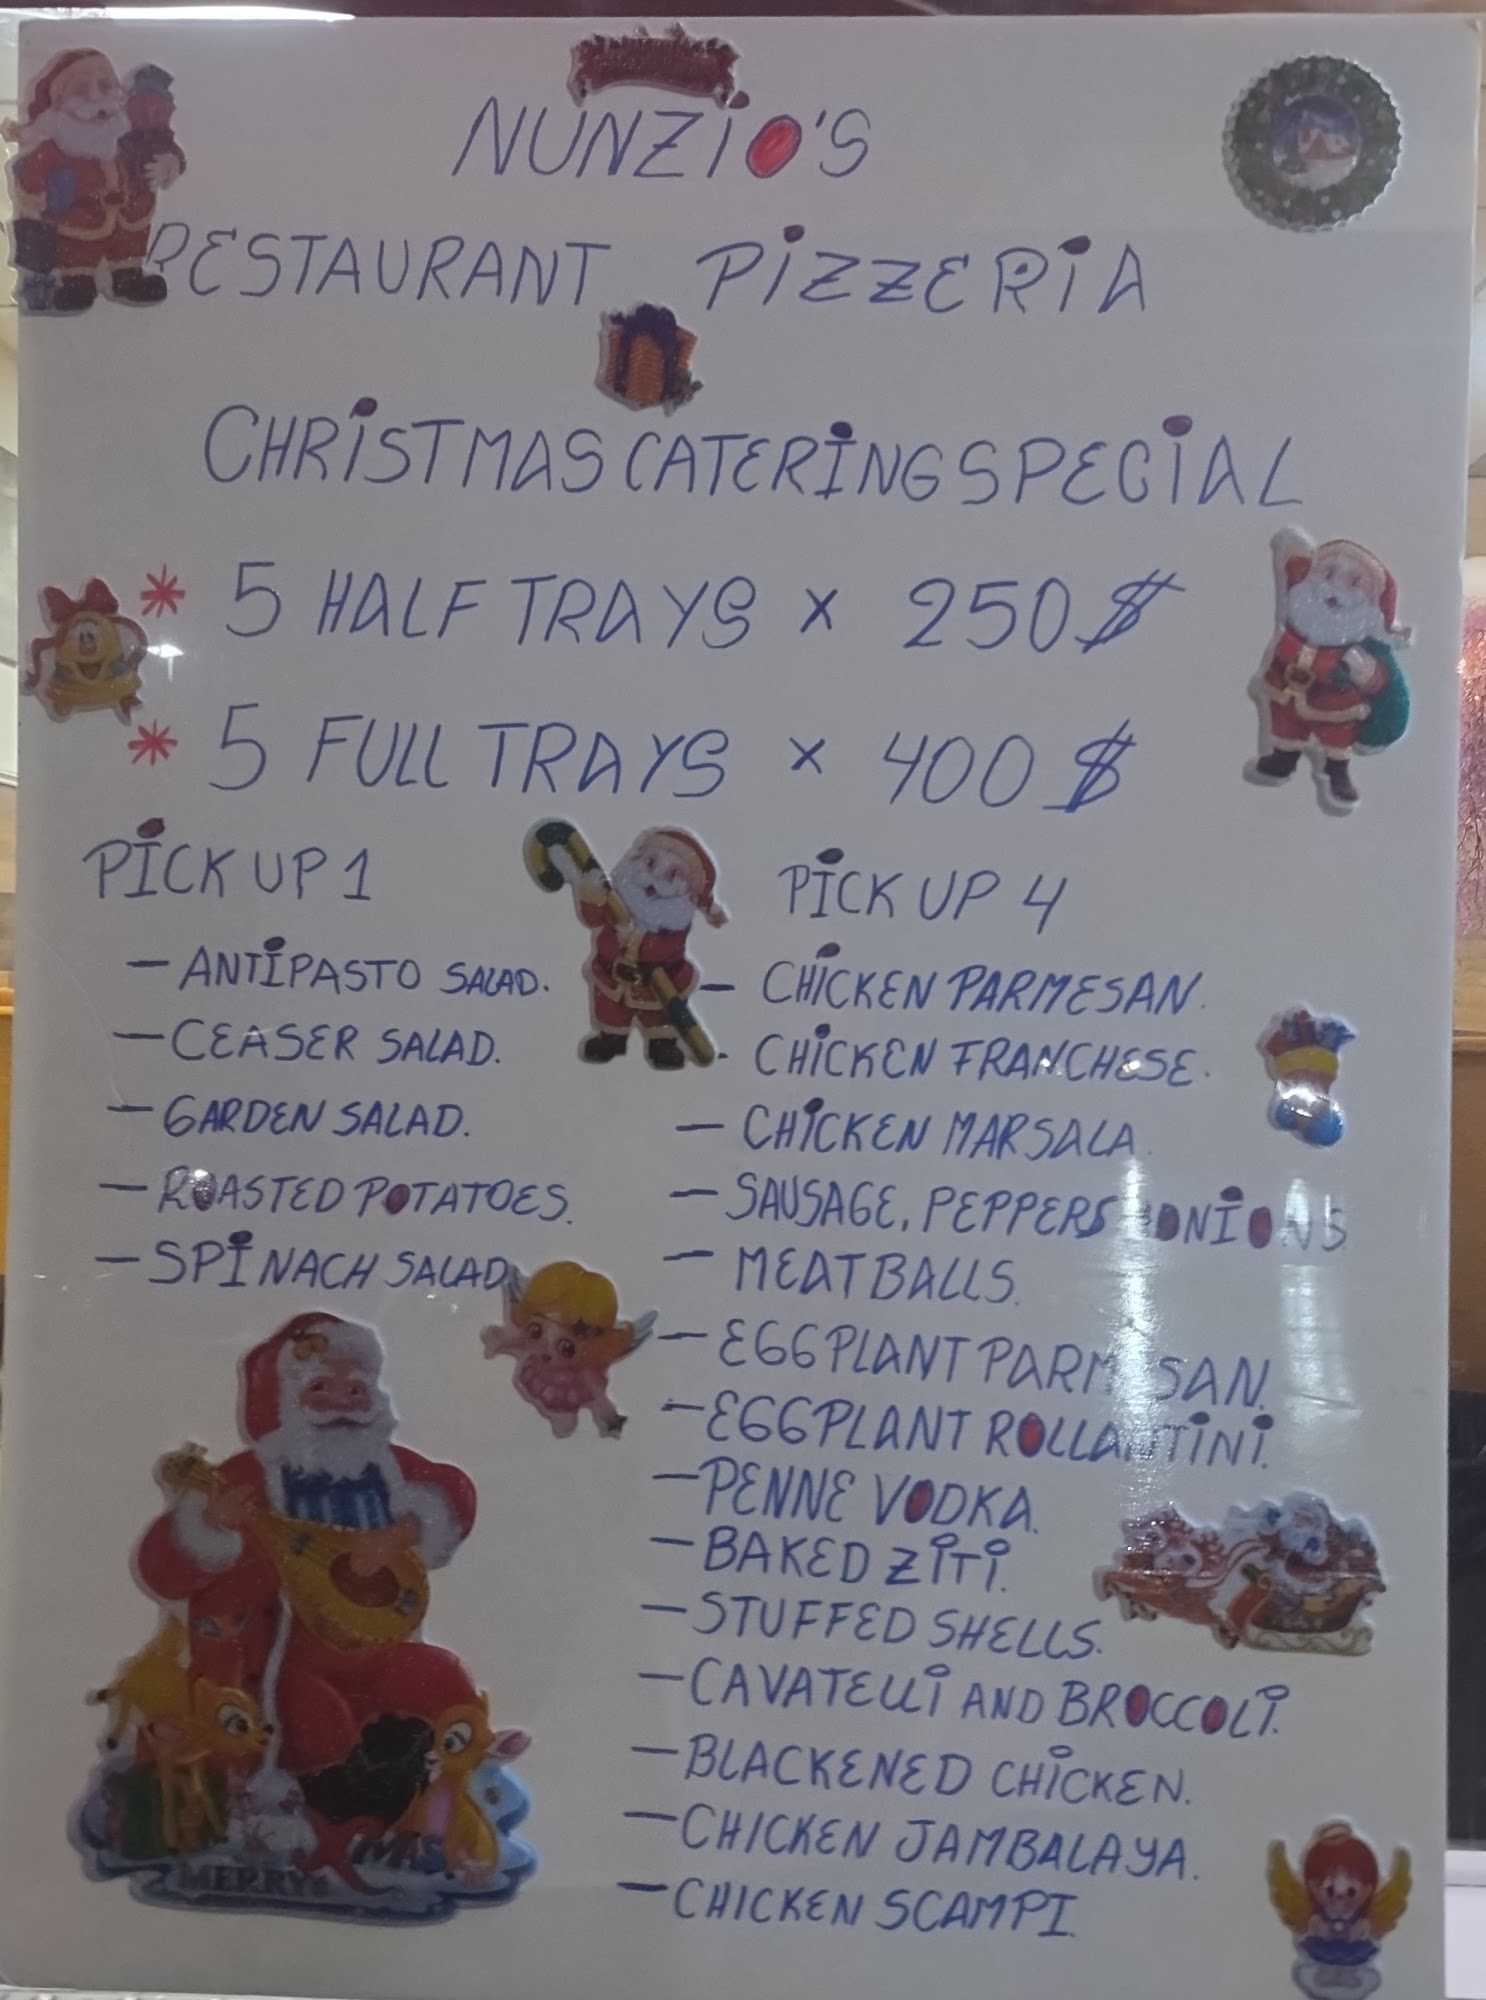 NUNZiO'S
RESTAURANT PiZZERiA
CHRiSTMAS CATERiNG SPECiAL
* 5 HALF TRAYS x 250$
* 5 FULL TRAYS x 400$
PiCK UP 1
- ANTiPASTO SALAD.
- CEASER SALAD.
- GARDEN SALAD.
- ROASTED POTATOES.
- SPiNACH SALAD
MERRY XMAS
PiCK UP 4
- CHiCKEN PARMESAN.
- CHiCKEN FRANCHESE.
- CHiCKEN MARSALA.
- SAUSAGE, PEPPERS ONiONS
- MEATBALLS.
- EGGPLANT PARMESAN.
- EGGPLANT ROLLANTiNi.
- PENNE VODKA.
- BAKED ZiTi.
- STUFFED SHELLS.
- CAVATELLi AND BROCCOLi.
- BLACKENED CHiCKEN.
- CHICKEN JAMBALAYA.
- CHICKEN SCAMPI.